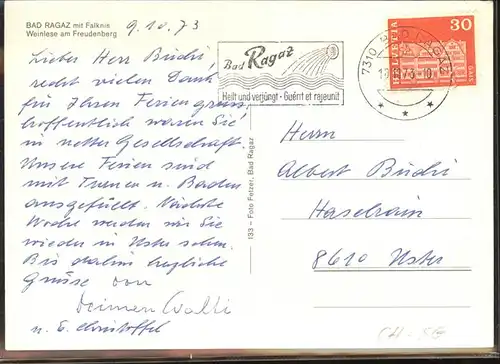 BAD RAGAZ mit Falknis
Weinlese am Freudenberg
9.10.73
Lieber Herr Büchi,
recht vielen Dank
für Ihren Feriengruss,
hoffentlich waren Sie
in netter Gesellschaft!
Unsere Ferien sind
mit Turnen u. Baden
ausgefüllt. Nächste
Woche werden wir Sie
wieder in Uster sehen.
Bis dahin herzliche
Grüsse von
Walli
u. E. Christoffel
133 – Foto Fetzer, Bad Ragaz
Bad Ragaz
Heilt und verjüngt - Guérit et rajeunit
7310 BAD RAGAZ
HELVETIA
30
Herrn
Albert Büchi
Haselrain
8610 Uster
CH-SG